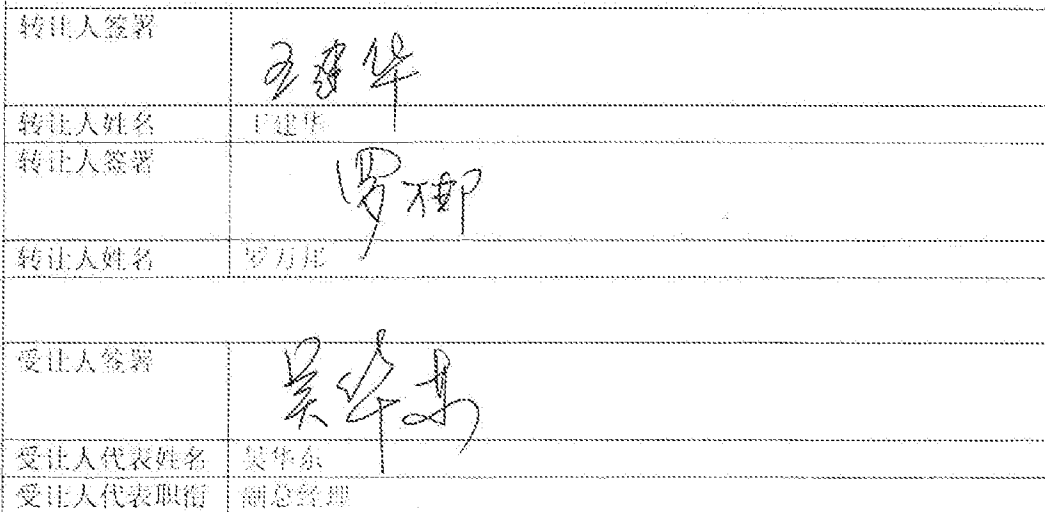 转让人签署 王建华
转让人姓名 王建华
转让人签署 罗万邦
转让人姓名 罗万邦
受让人签署 吴华东
受让人代表姓名 吴华东
受让人代表职衔 副总经理